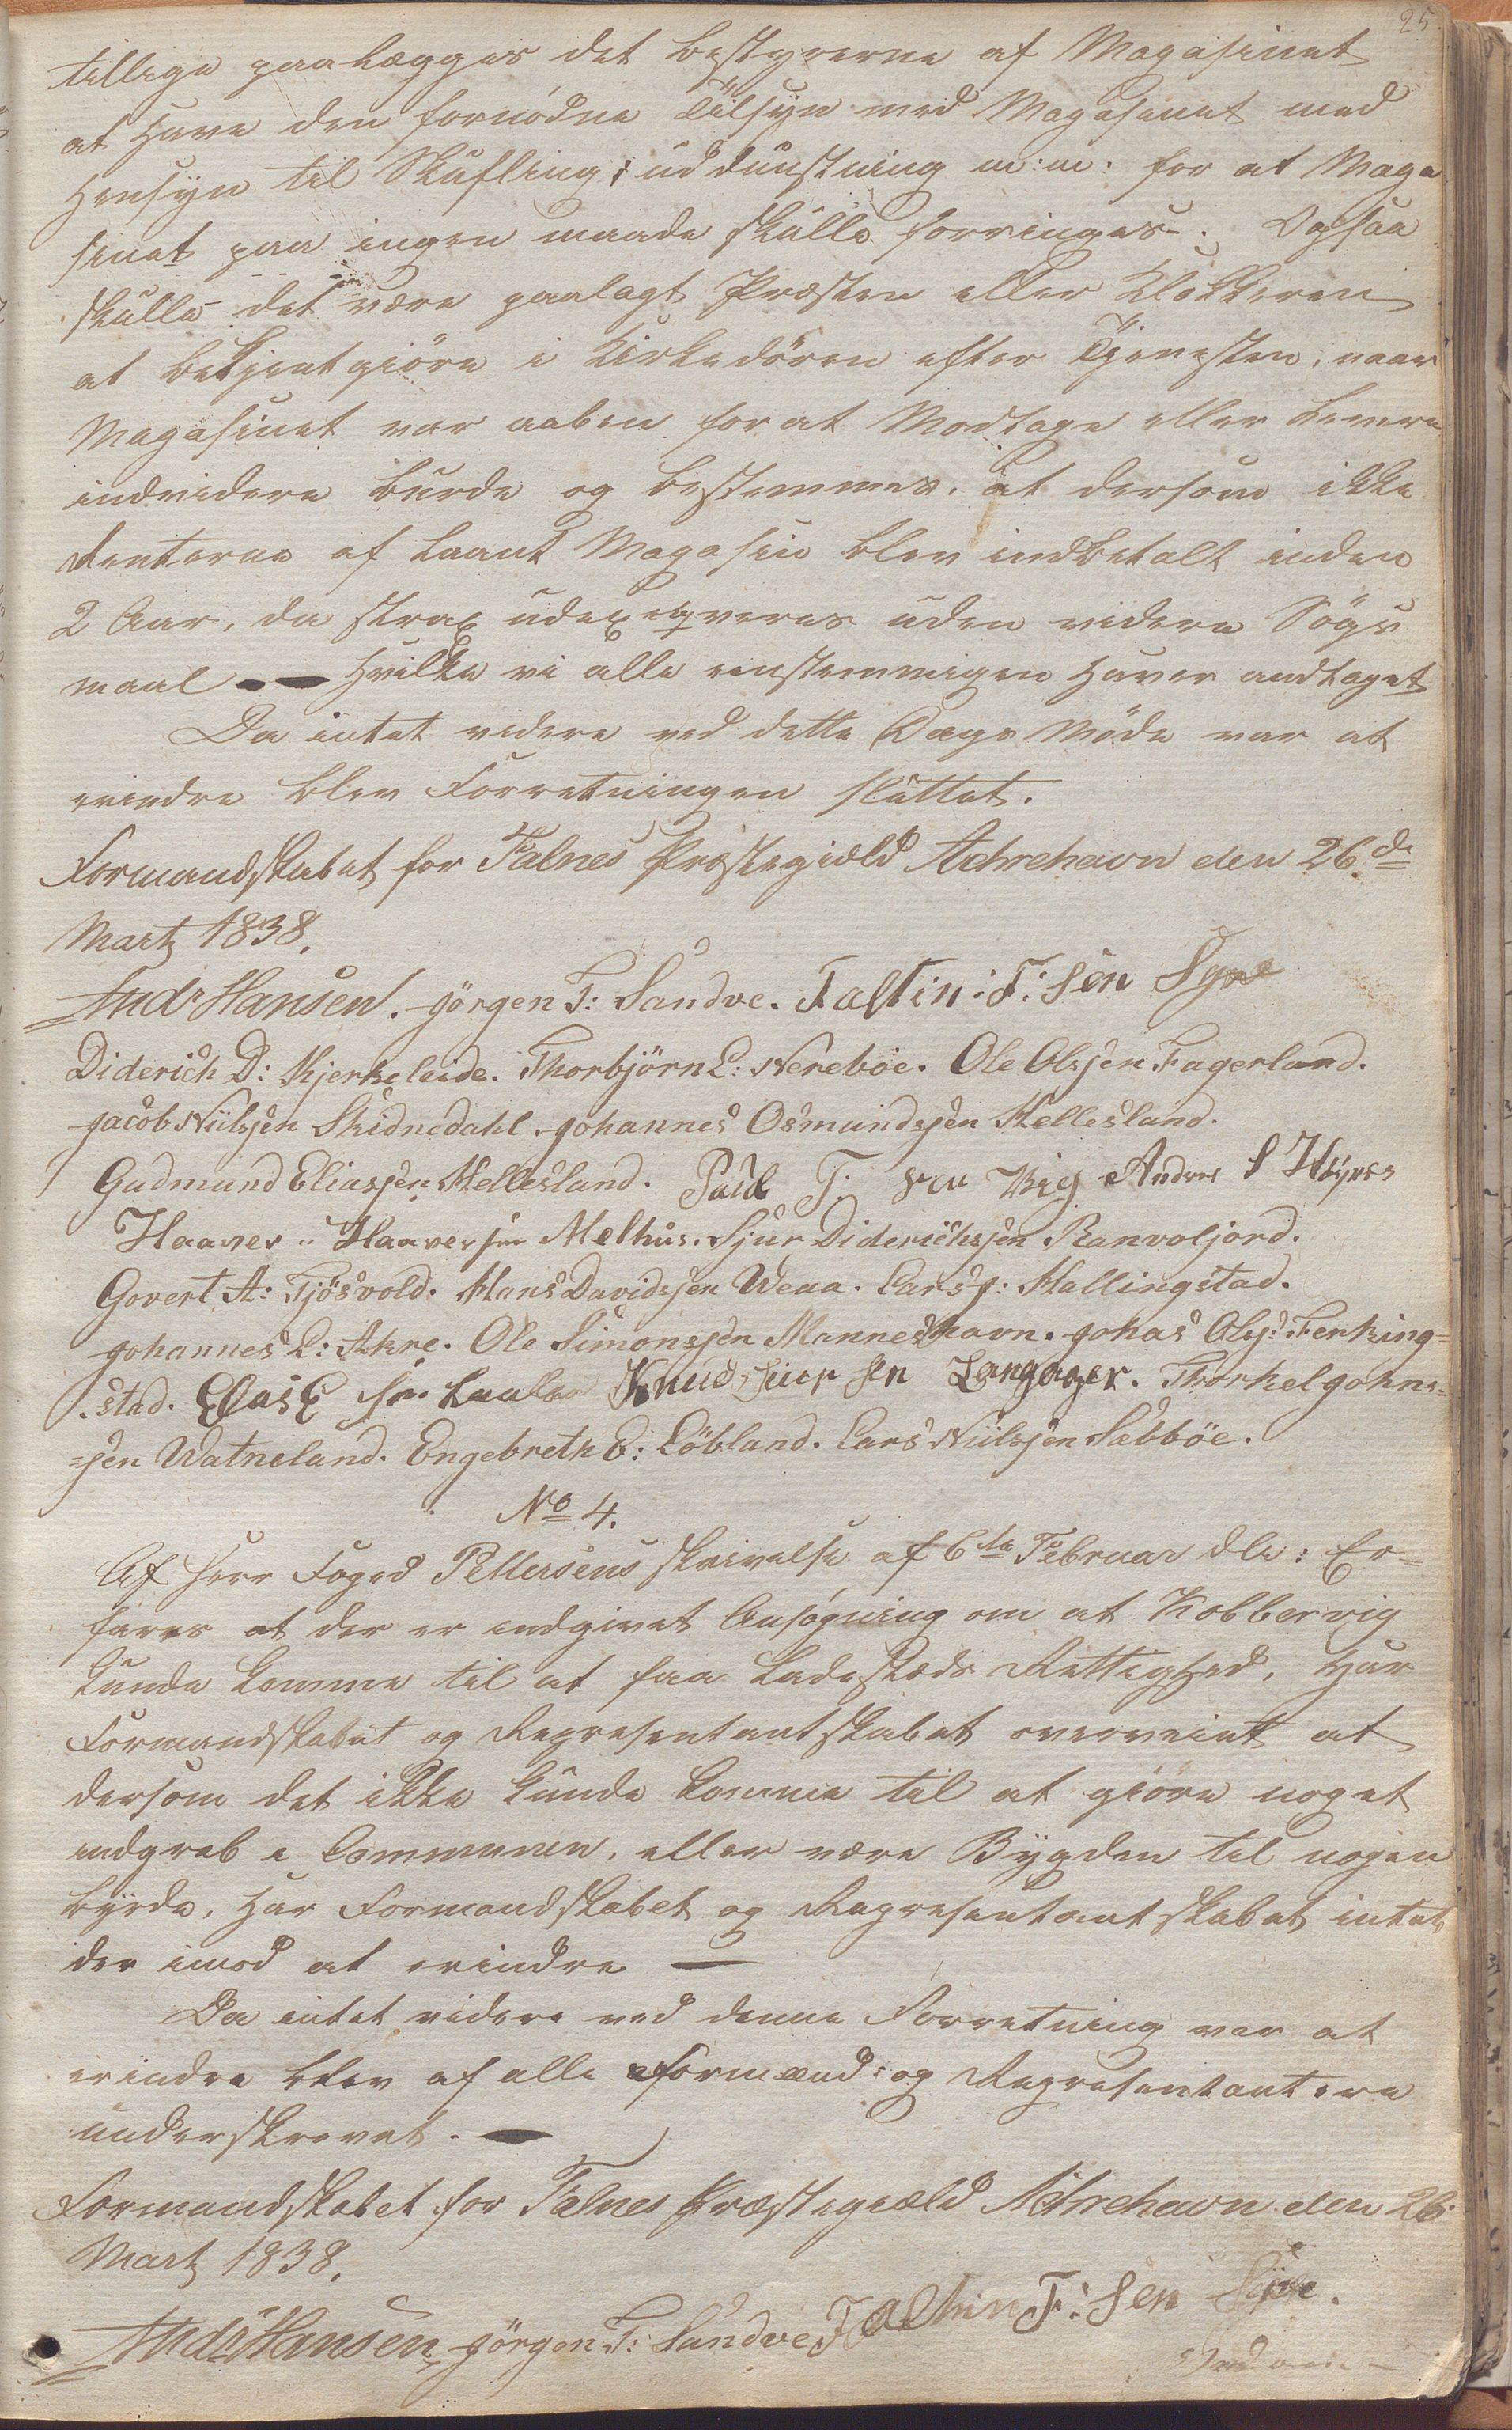 25.
tillige paalægges det Bestyrerne af Magasinet
at have den fornødne Tilsyn med Magasinet med
Hensyn til Skufling; uddunstning m:m: for at Maga
sinet paa ingen maade skulle forringes. Ogsaa
skulle det være paalagt Præsten eller Klokkeren
at bekjentgiöre i Kirkedören efter Tjenesten, naar
Magasinet var aaben for at Modtage eller Levere
endvidere burde og bestemmes, at dersom ikke
Renterne af Laant Magasin blev indbetalt inden
2 Aar, da strax udexeqveres uden videre Sögs
maal — Hvilke vi alle eenstemmigen haver andtaget
Da intet videre ved dette Dags Möde var at
erindre blev Forretningen sluttet.
Formandskabet for Falnes Præstegiæld Achrehavn den 26de
Martz 1838.
And: Hansen. Jörgen T: Sandve. Faltin: F: Sen Syre
Diderich D: Kjerkeleide. Thorbjörn L: Nereböe. Ole Olsjen Fagerland.
Jacob Niilsjen Skidnedahl. Johannes Osmundsjen Hellesland.
Gudmund Eliasjen Mellesland. Paul T. Sen Vig Anders S
Haaver Haaversen Melhus. Sjur Diderichsjen Ranvoljord.
Govert A: Tjösvold. Hans Davidsjen Weaa. Lars J: Hallingstad.
Johannes L: Ahre. Ole Simonsjen Manneshavn. Johas Ols: Ferking=
stad. Elias E Sen Knud Siver Sen Langager. Thorkel Johns=
=sen Watneland. Engebreth E: Löbland. Lars Niilsjen Sebböe.
No 4.
Af Herr Foged Pettersens skrivelse af 6te Februar dle: Er=
fares at der er indgivet Ansøgning om at Kobbervig
kunde komme til at faa Ladesteds Rettighed, Har
Formandskabet og Representantskabet overveiet at
dersom det ikke kunde komme til at giöre noget
indgreb i Communen, eller være Bygden til nogen
byrde, har Formandskabet og Representantskabet intet
der imod at erindre —
Da intet videre ved denne Forretning var at
erindre blev af alle Formænd og Representantere
underskrevet. —
Formandskabet for Falnes Præstegiæld Achrehavn den 26
Martz 1838.
And: Hansen Jörgen T: Sandve Faltin F: Sen Syre.